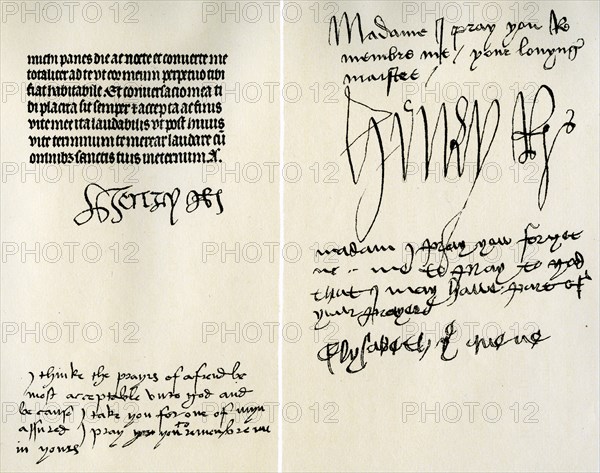 michi panes die ac nocte et convertē me
totaliter ad te vt cor meum perpetuo tibi
fiat habitabile. Et conversacio mea ti
di placita sit semper ⁊ accepta ac finis
vite mee ita laudabilis vt post huius
vite terminum te merear laudare cū
omnibꝫ sanctis tuis ineternum. A.
Henry
I thinke the prayrs of a frend be
most acceptable unto god and
be cause I take you for one of myn
assured I pray you remembre me
in yours
Madame I pray you Re
membre me / your lovyng
maister /
Henry R
madam I pray you forget
me to pray to god
that I may have part of
your prayers
Elysabeth ye quene
PHOTO 12